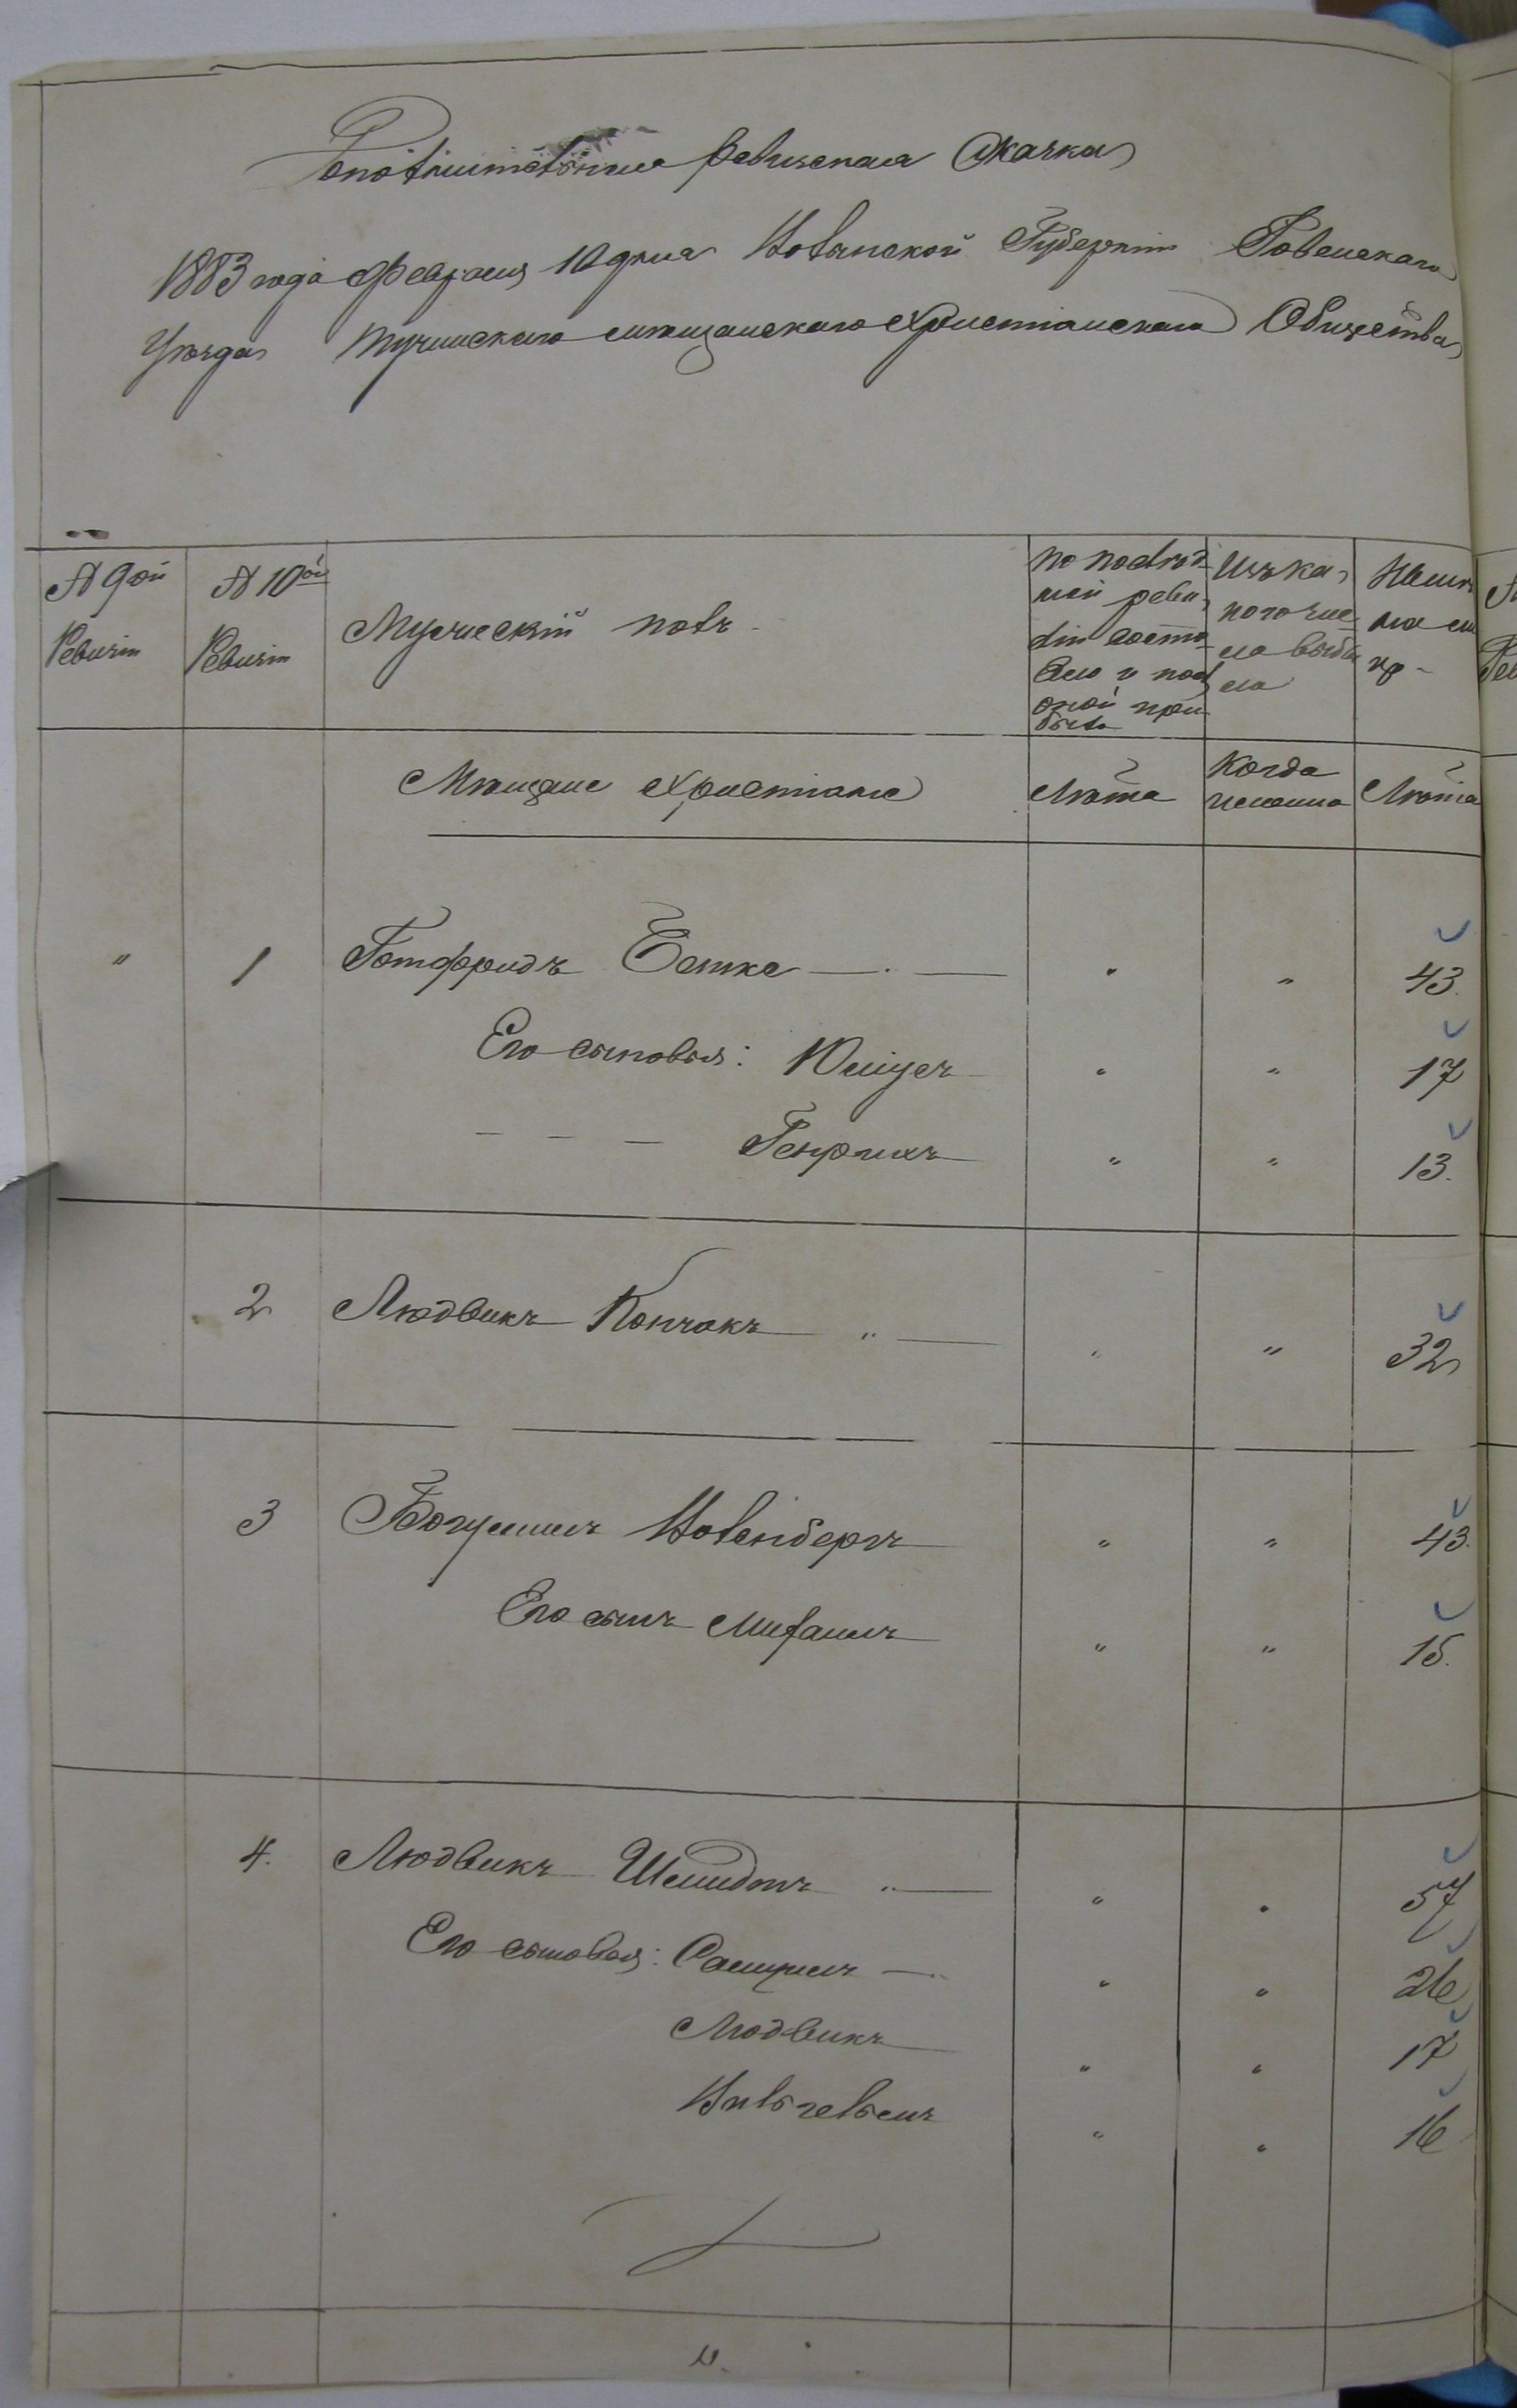 Дополнительная Ревизская Сказка
1883 года Февраля 10 дня Волынской Губерніи Ровенскаго
Уѣзда Тучинскаго мѣщанскаго христіанскаго Общества
№ 9ой
Ревизіи
№ 10ой
Ревизіи
Мужескій полъ
по послѣд
ней реви
зіи состо
яло и посл
оной при
было
Изъ
того чис
ла выбы
ло
Нынѣ
на ли
цо
Мѣщане христіане
Лѣта
Когда
именно
Лѣта
" 1 Готфридъ " " 43.
Его сыновья: " " 17
Генрихъ " " 13.
2 Людвикъ Кончакъ " " " 32
3 Богумилъ " " 43.
Его сынъ " " 15.
4. Людвикъ Шмидтъ " " " 57
Его сыновья: Самуилъ " " 26
Людвикъ " " 17
Вильгельмъ " " 16